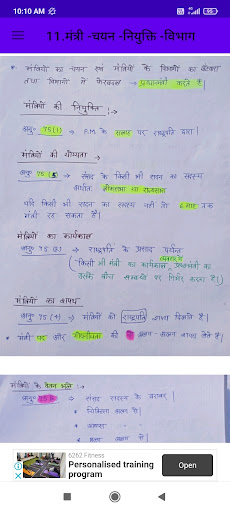 10:10 AM
11.मंत्री -चयन -नियुक्ति -विभाग
मंत्रियों का चयन एवं मंत्रियों के विभागों का बँटवारा
तथा विभागों में फेरबदल → प्रधानमंत्री करते हैं|
मंत्रियों की नियुक्ति :→
अनु० 75(1) → P.M. के सलाह पर राष्ट्रपति द्वारा|
मंत्रियों की योग्यता →
अनु० 75(5) → संसद के किसी भी सदन का सदस्य
अर्थात् लोकसभा या राज्यसभा
यदि किसी भी सदन का सदस्य नहीं तो 6 माह तक
मंत्री रह सकता है|
मंत्रियों का कार्यकाल
अनु० 75 → राष्ट्रपति के प्रसाद पर्यन्त
"किसी भी मंत्री का कार्यकाल प्रधानमंत्री का
उसके बीच सम्बन्धों पर निर्भर करता है|
मंत्रियों का शपथ
अनु० 75(4) → मंत्रियों को राष्ट्रपति शपथ दिलाते हैं|
मंत्री पद और गोपनीयता की अलग अलग शपथ लेते हैं|
मंत्रियों के वेतन भत्ते :→
अनु० 75 → संसद सदस्य के बराबर|
चिकित्सा
आवास
6262 Fitness
Personalised training
program
Open